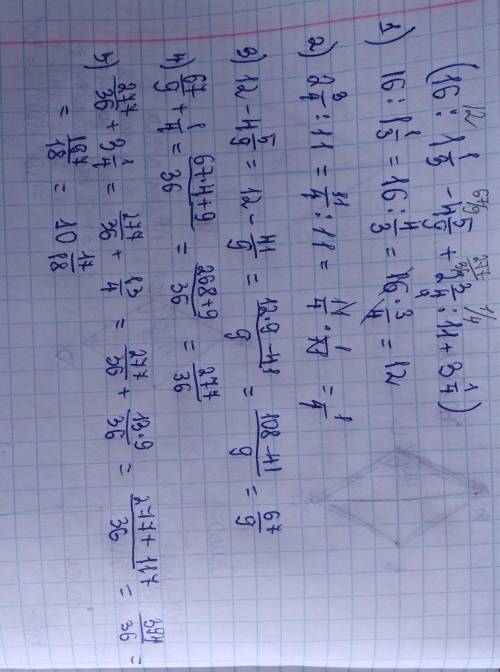 12 67/9 277/36 1/4
(16 : 1 1/3 - 4 5/9 + 2 3/4 : 11 + 3 1/4)
1) 16 : 1 1/3 = 16 : 4/3 = 16 · 3/4 = 12
2) 2 3/4 : 11 = 11/4 : 11 = 11/4 · 1/11 = 1/4
3) 12 - 4 5/9 = 12 - 41/9 = (12·9-41)/9 = (108-41)/9 = 67/9
4) 67/9 + 1/4 = (67·4+9)/36 = (268+9)/36 = 277/36
5) 277/36 + 3 1/4 = 277/36 + 13/4 = 277/36 + 13·9/36 = (277+117)/36 = 394/36 =
= 197/18 = 10 17/18